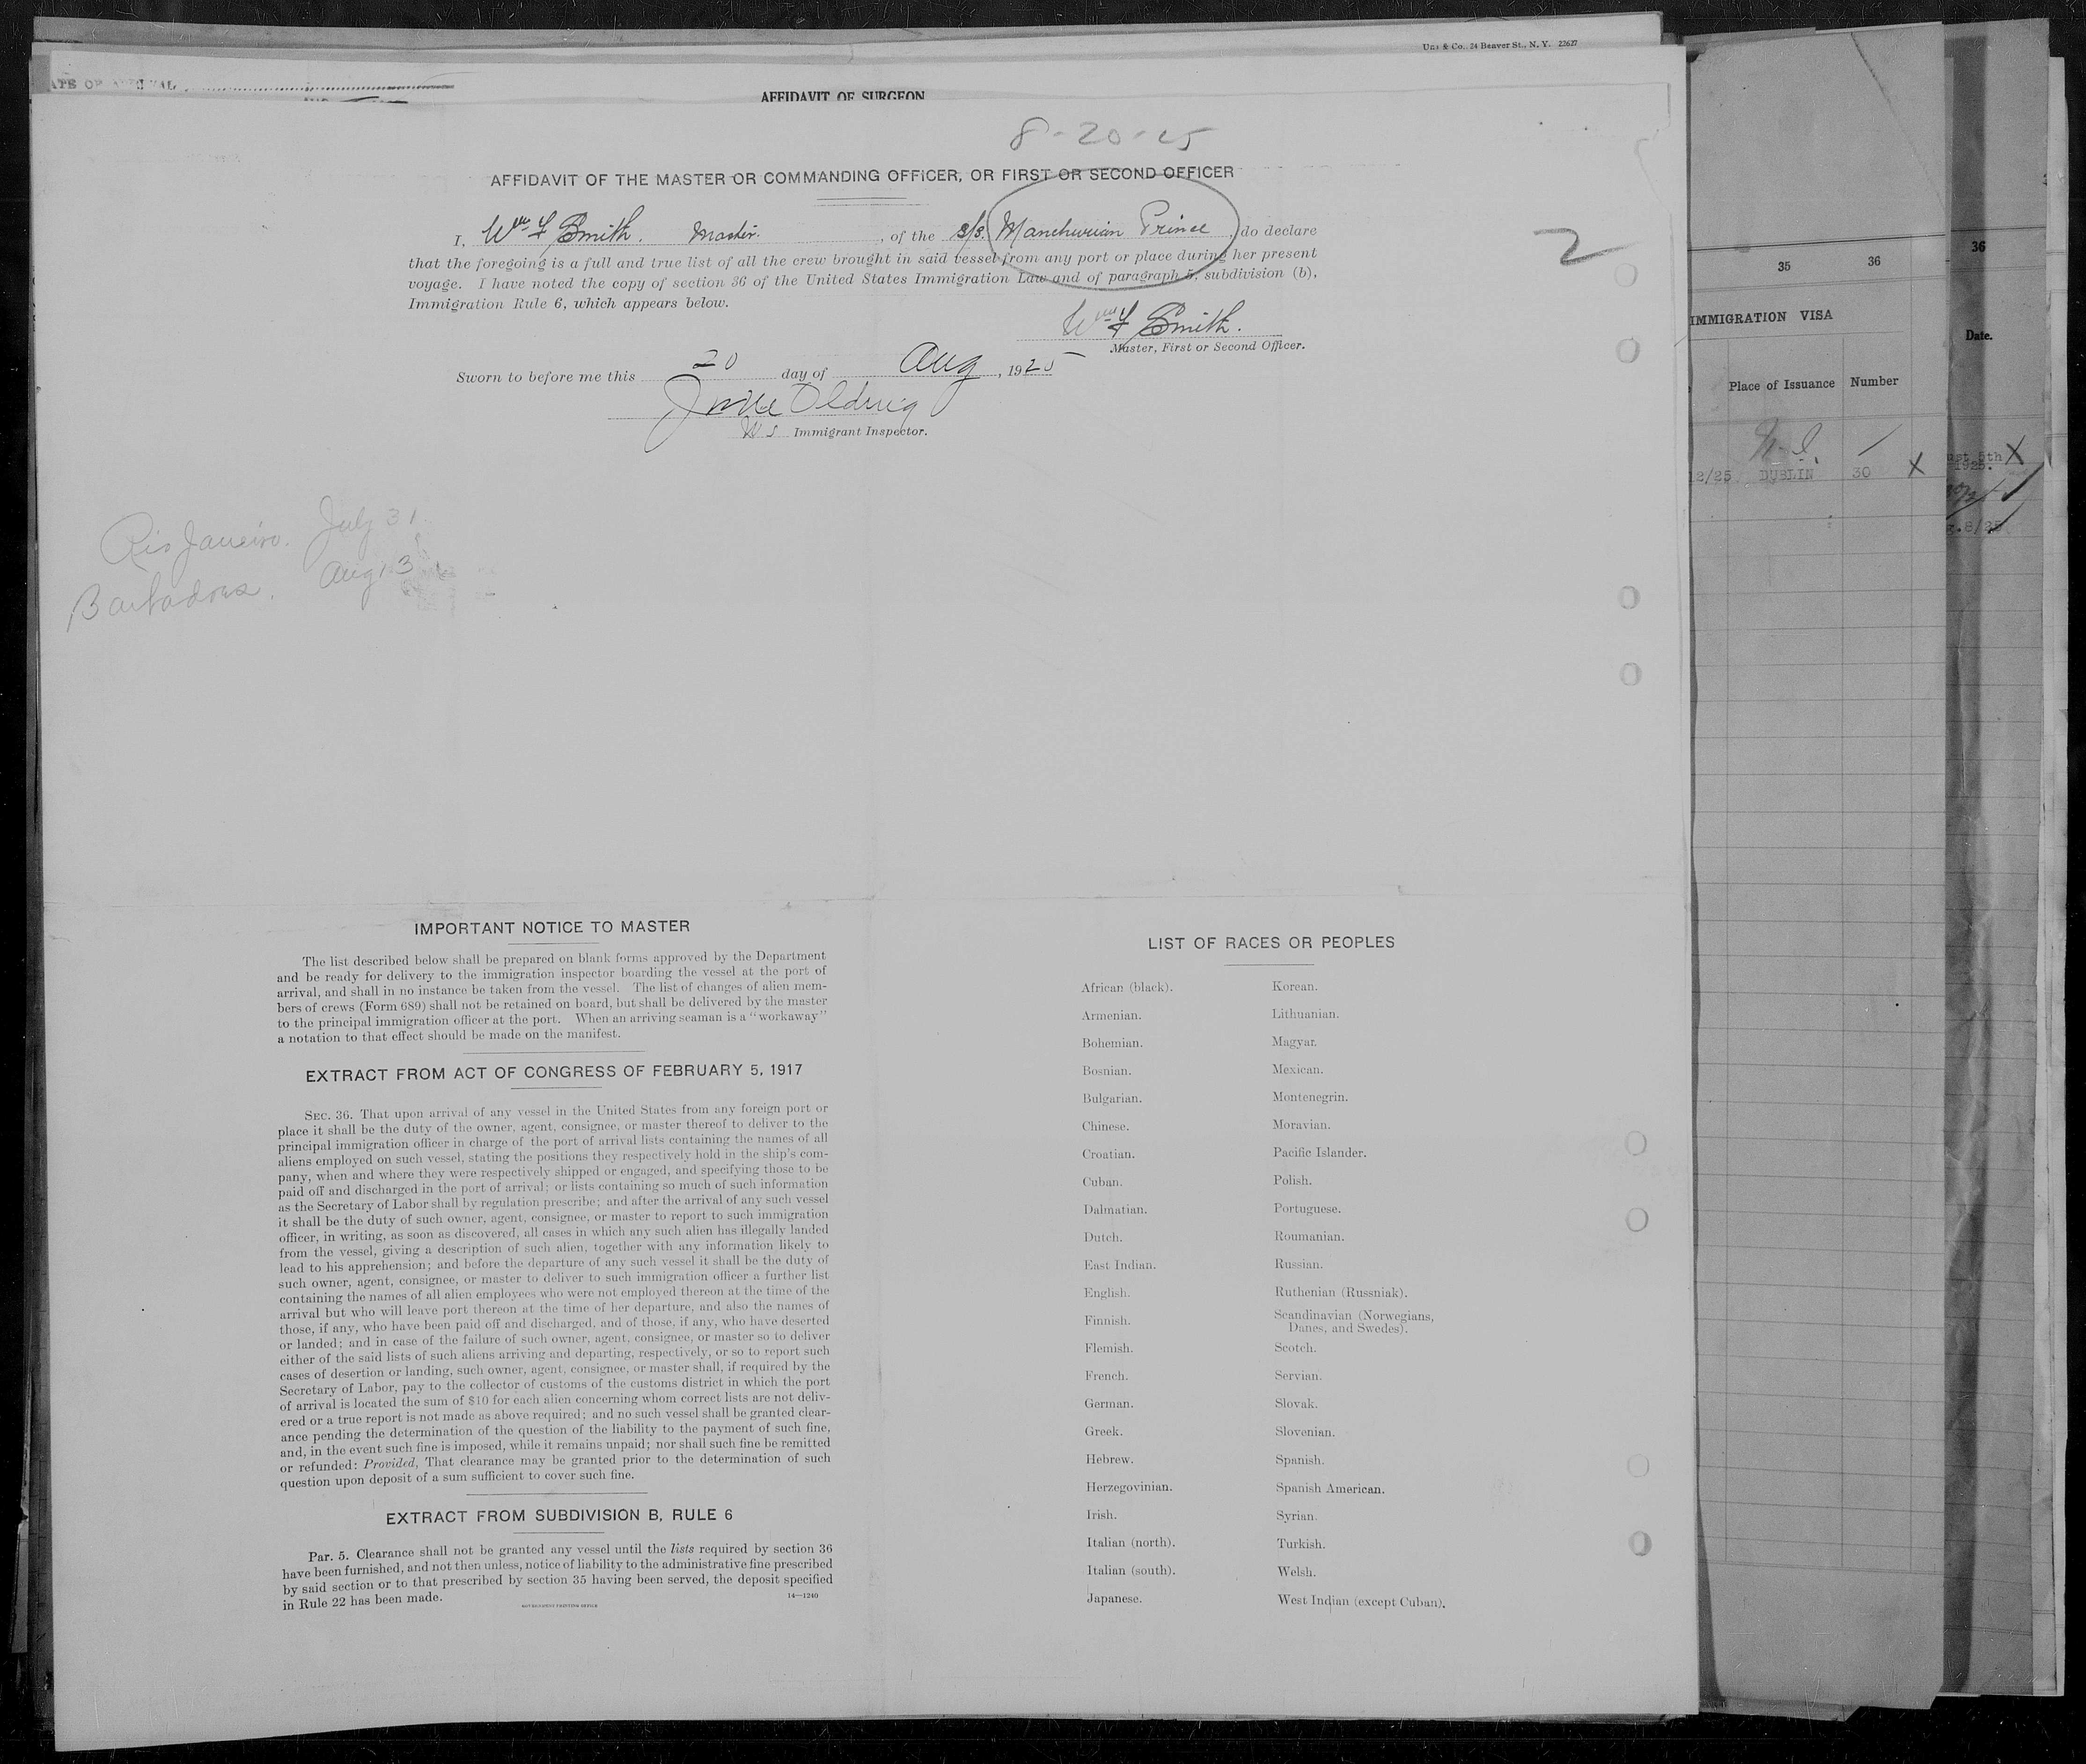 Uns & Co., 24 Beaver St., N. Y. 22627
AFFIDAVIT OF SURGEON
8-20-25
AFFIDAVIT OF THE MASTER OR COMMANDING OFFICER, OR FIRST OR SECOND OFFICER
I, Wm F Smith. Master. , of the S/S. Manchurian Prince , do declare
that the foregoing is a full and true list of all the crew brought in said vessel from any port or place during her present
voyage. I have noted the copy of section 36 of the United States Immigration Law and of paragraph 5, subdivision (b),
Immigration Rule 6, which appears below.
2
Wm F Smith.
Master, First or Second Officer.
Sworn to before me this 20 day of Aug , 1925
Oldrieg
U S Immigrant Inspector.
Rio Janeiro. July 31
Barbados. Aug 13
IMPORTANT NOTICE TO MASTER
The list described below shall be prepared on blank forms approved by the Department
and be ready for delivery to the immigration inspector boarding the vessel at the port of
arrival, and shall in no instance be taken from the vessel. The list of changes of alien mem-
bers of crews (Form 689) shall not be retained on board, but shall be delivered by the master
to the principal immigration officer at the port. When an arriving seaman is a "workaway"
a notation to that effect should be made on the manifest.
EXTRACT FROM ACT OF CONGRESS OF FEBRUARY 5, 1917
SEC. 36. That upon arrival of any vessel in the United States from any foreign port or
place it shall be the duty of the owner, agent, consignee, or master thereof to deliver to the
principal immigration officer in charge of the port of arrival lists containing the names of all
aliens employed on such vessel, stating the positions they respectively hold in the ship's com-
pany, when and where they were respectively shipped or engaged, and specifying those to be
paid off and discharged in the port of arrival; or lists containing so much of such information
as the Secretary of Labor shall by regulation prescribe; and after the arrival of any such vessel
it shall be the duty of such owner, agent, consignee, or master to report to such immigration
officer, in writing, as soon as discovered, all cases in which any such alien has illegally landed
from the vessel, giving a description of such alien, together with any information likely to
lead to his apprehension; and before the departure of any such vessel it shall be the duty of
such owner, agent, consignee, or master to deliver to such immigration officer a further list
containing the names of all alien employees who were not employed thereon at the time of the
arrival but who will leave port thereon at the time of her departure, and also the names of
those, if any, who have been paid off and discharged, and of those, if any, who have deserted
or landed; and in case of the failure of such owner, agent, consignee, or master so to deliver
either of the said lists of such aliens arriving and departing, respectively, or so to report such
cases of desertion or landing, such owner, agent, consignee, or master shall, if required by the
Secretary of Labor, pay to the collector of customs of the customs district in which the port
of arrival is located the sum of $10 for each alien concerning whom correct lists are not deliv-
ered or a true report is not made as above required; and no such vessel shall be granted clear-
ance pending the determination of the question of the liability to the payment of such fine,
and, in the event such fine is imposed, while it remains unpaid; nor shall such fine be remitted
or refunded: Provided, That clearance may be granted prior to the determination of such
question upon deposit of a sum sufficient to cover such fine.
EXTRACT FROM SUBDIVISION B, RULE 6
Par. 5. Clearance shall not be granted any vessel until the lists required by section 36
have been furnished, and not then unless, notice of liability to the administrative fine prescribed
by said section or to that prescribed by section 35 having been served, the deposit specified
in Rule 22 has been made.
14—1240
GOVERNMENT PRINTING OFFICE
LIST OF RACES OR PEOPLES
African (black).
Armenian.
Bohemian.
Bosnian.
Bulgarian.
Chinese.
Croatian.
Cuban.
Dalmatian.
Dutch.
East Indian.
English.
Finnish.
Flemish.
French.
German.
Greek.
Hebrew.
Herzegovinian.
Irish.
Italian (north).
Italian (south).
Japanese.
Korean.
Lithuanian.
Magyar.
Mexican.
Montenegrin.
Moravian.
Pacific Islander.
Polish.
Portuguese.
Roumanian.
Russian.
Ruthenian (Russniak).
Scandinavian (Norwegians,
Danes, and Swedes).
Scotch.
Servian.
Slovak.
Slovenian.
Spanish.
Spanish American.
Syrian.
Turkish.
Welsh.
West Indian (except Cuban).
35 36
IMMIGRATION VISA
Place of Issuance Number
12/25 DUBLIN 30 X
36
Date.
5th X
1925.
8/25